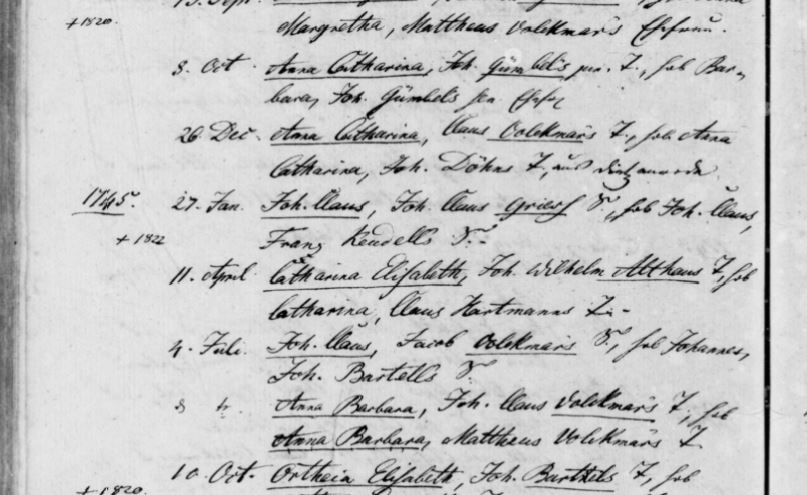 + 1820.
Margretha, Matthaeus Volckmar's Ehefrau.
8. Oct. Anna Catharina, Joh. Gümbel's jun. T., hob Bar-
bara, Joh. Gümbel's sen Ehefr
26. Dec. Anna Catharina, Claus Volckmar's T., hob Anna
Catharina, Joh. Döhns T, aus
1745. 27. Jan. Joh. Claus, Joh. Claus S., hob Joh. Claus,
+ 1822 Franz Keudells S.
11. April Catharina Elisabeth, Joh. Wilhelm Althaus T, hob
Catharina, Claus Hartmanns T.
4. Juli. Joh. Claus, Jacob Volckmar's S., hob Johannes,
Joh. Bartells S.
8 Anna Barbara, Joh. Claus Volckmar's T, hob
Anna Barbara, Matthaeus Volckmar's T
10. Oct. Ortheia Elisabeth, Joh. Barthels T, hob
+ 1820.